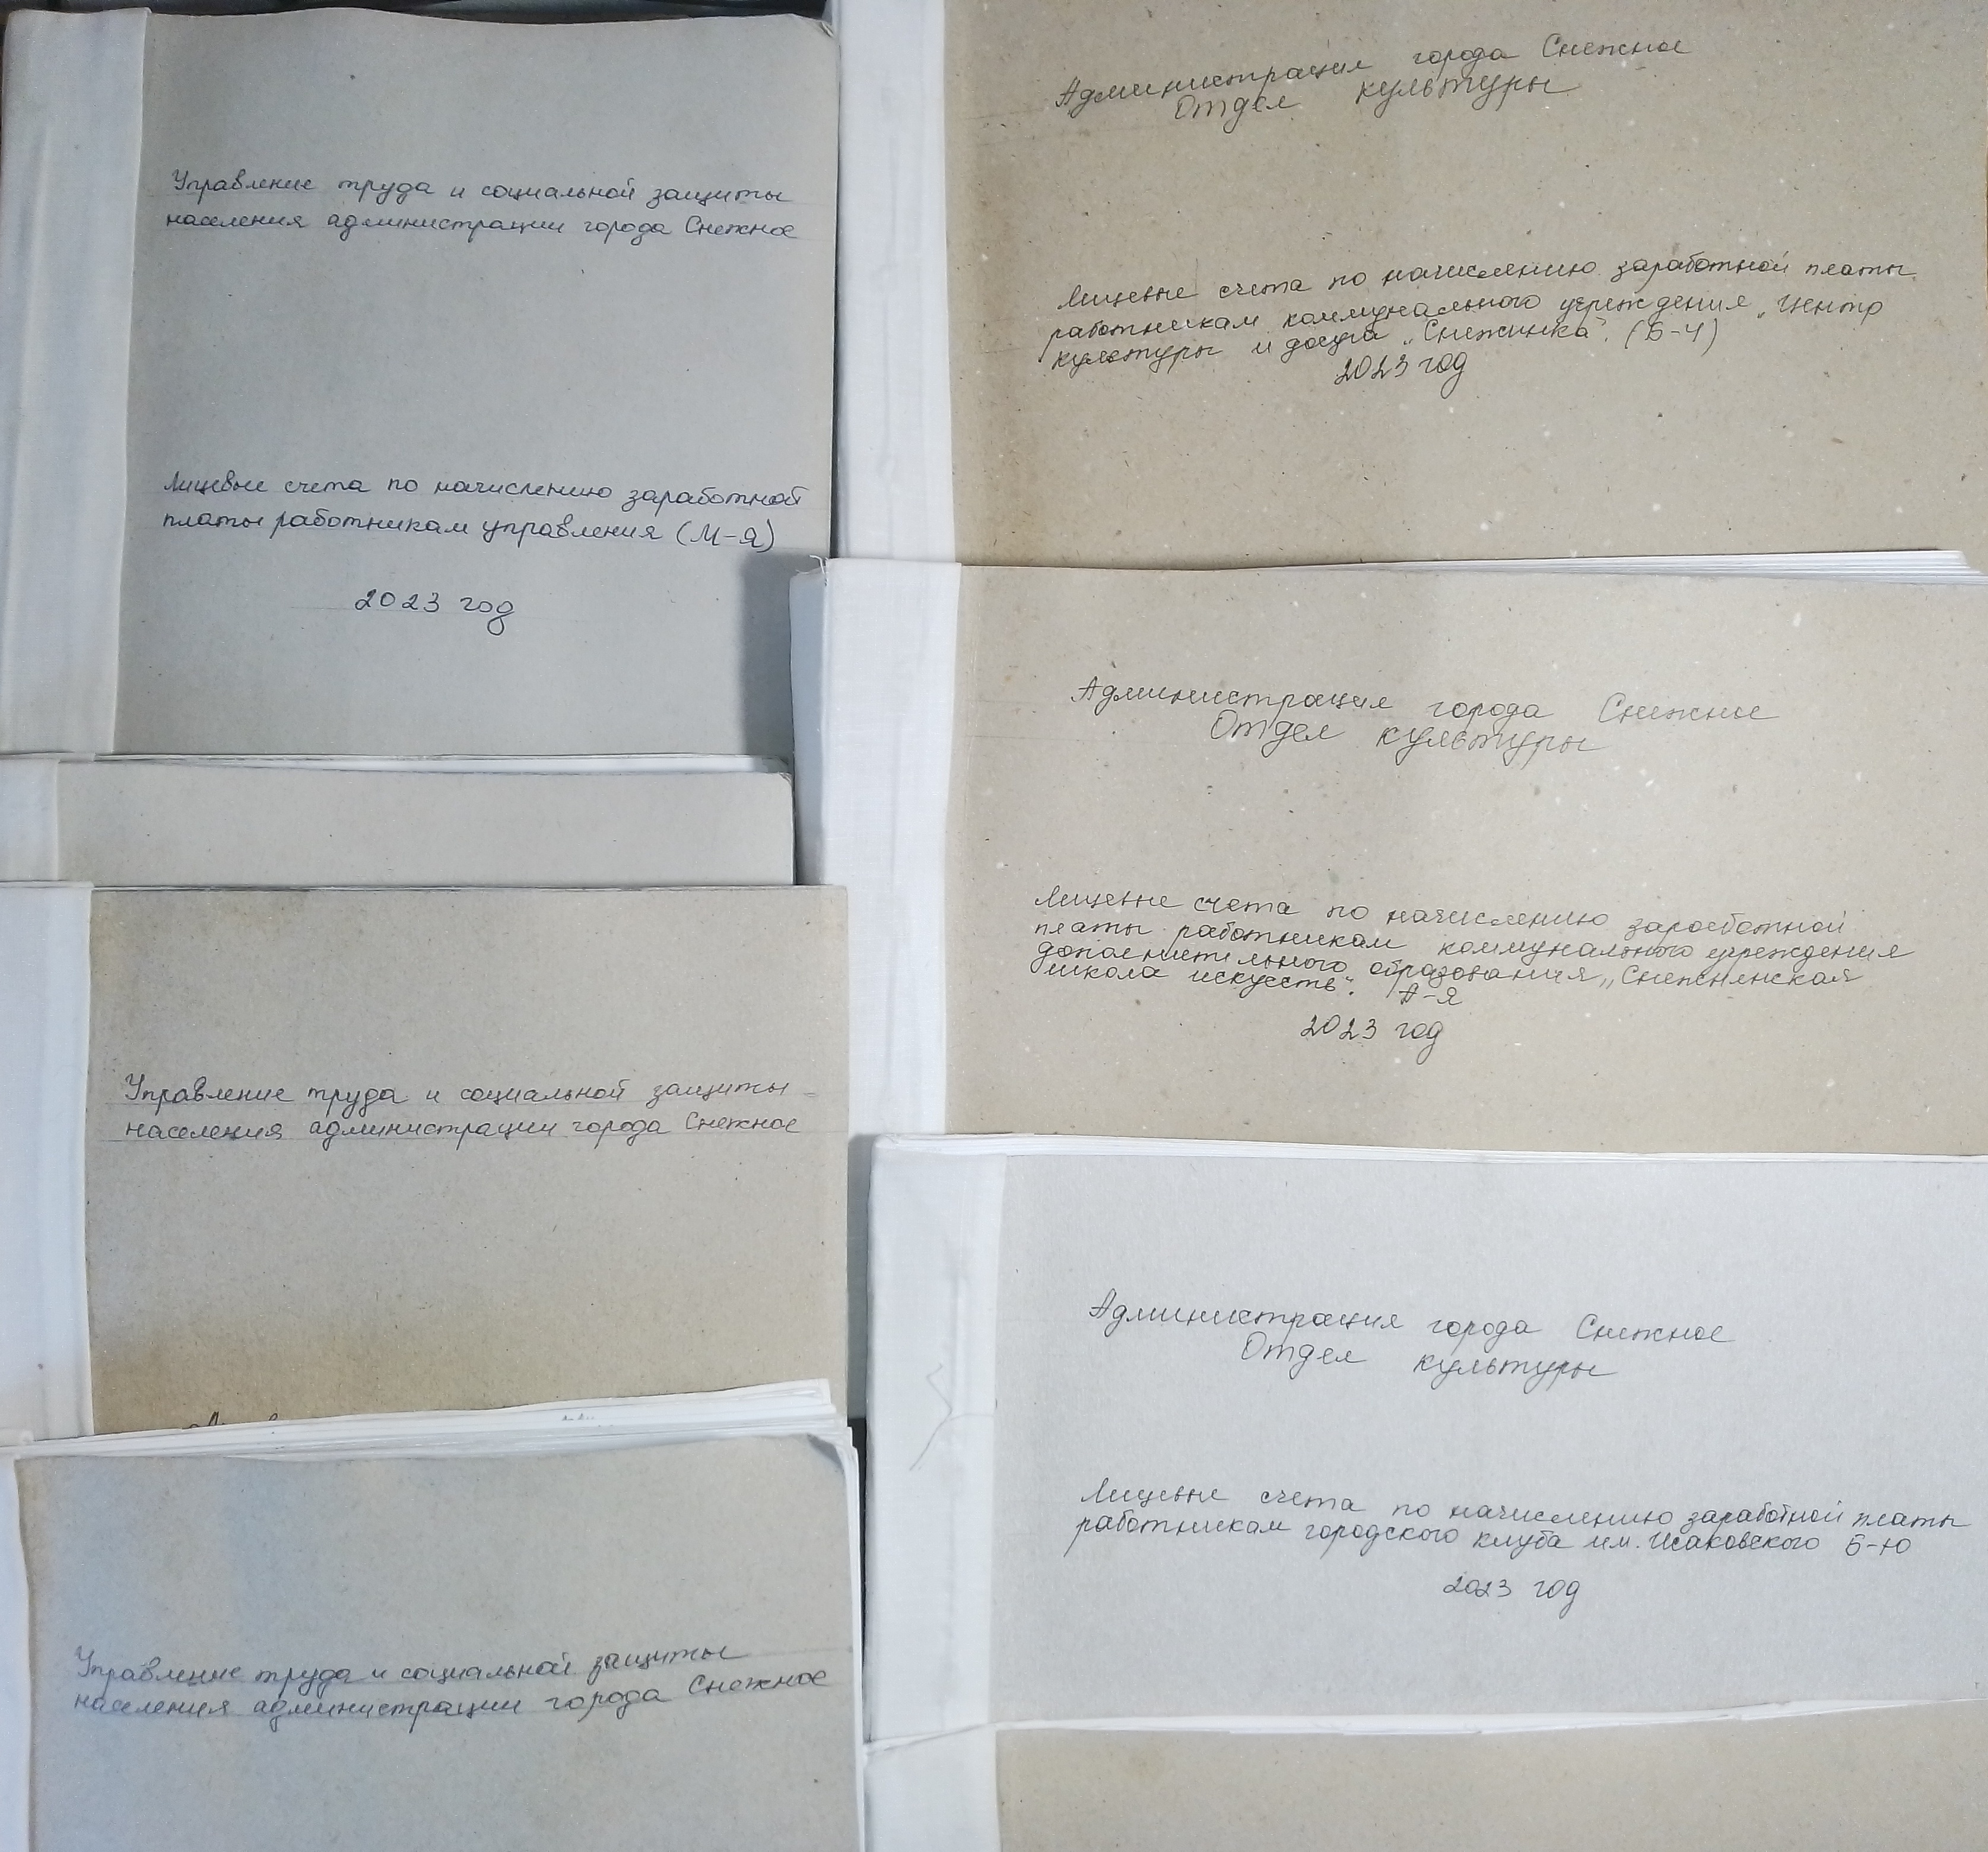 Управление труда и социальной защиты
населения администрации города Снежное
Лицевые счета по начислению заработной
платы работникам управления (М-Я)
2023 год
Управление труда и социальной защиты
населения администрации города Снежное
Управление труда и социальной защиты
населения администрации города Снежное
Администрация города Снежное
Отдел культуры
Лицевые счета по начислению заработной платы
работникам коммунального учреждения „Центр
культуры и досуга „Снежинка". (Б-Ч)
2023 год
Администрация города Снежное
Отдел культуры
Лицевые счета по начислению заработной
платы работникам коммунального учреждения
дополнительного образования „Снежнянская
школа искусств". А-Я
2023 год
Администрация города Снежное
Отдел культуры
Лицевые счета по начислению заработной платы
работникам городского клуба им. Исаковского Б-Ю
2023 год